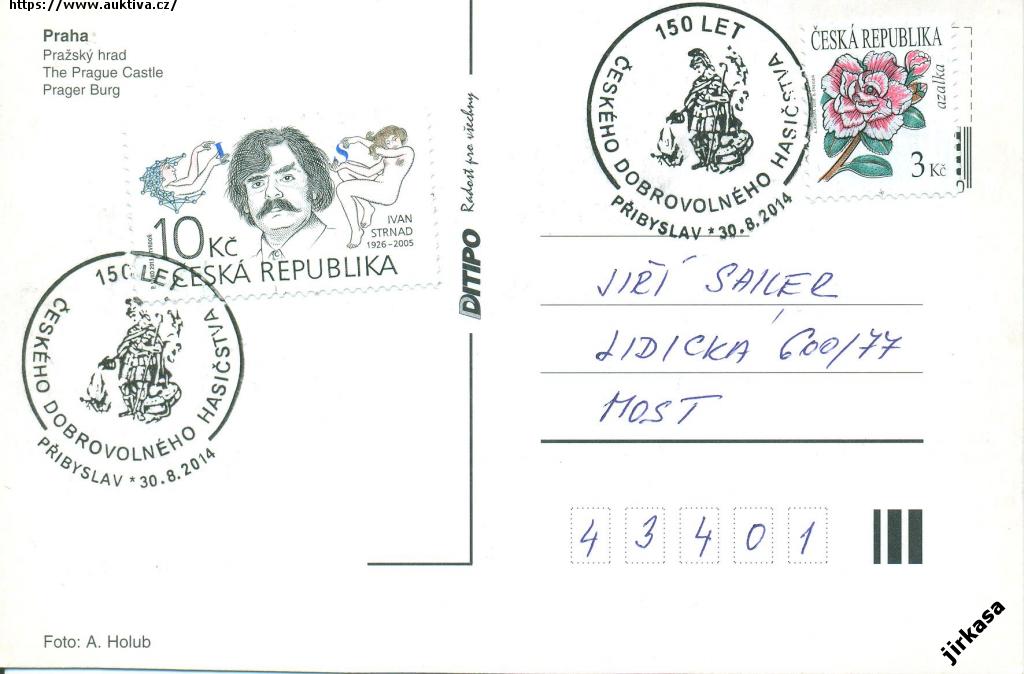 https://www.auktiva.cz/
Praha
Pražský hrad
The Prague Castle
Prager Burg
10 Kč
ČESKÁ REPUBLIKA
IVAN
STRNAD
1926-2005
150 LET
ČESKÉHO DOBROVOLNÉHO HASIČSTVA
PŘIBYSLAV * 30.8.2014
Radost pro všechny
DITIPO
150 LET
ČESKÉHO DOBROVOLNÉHO HASIČSTVA
PŘIBYSLAV * 30.8.2014
ČESKÁ REPUBLIKA
azalka
3 Kč
JIŘÍ SAILER
LIDICKÁ 600/77
MOST
43401
Foto: A. Holub
jirkasa